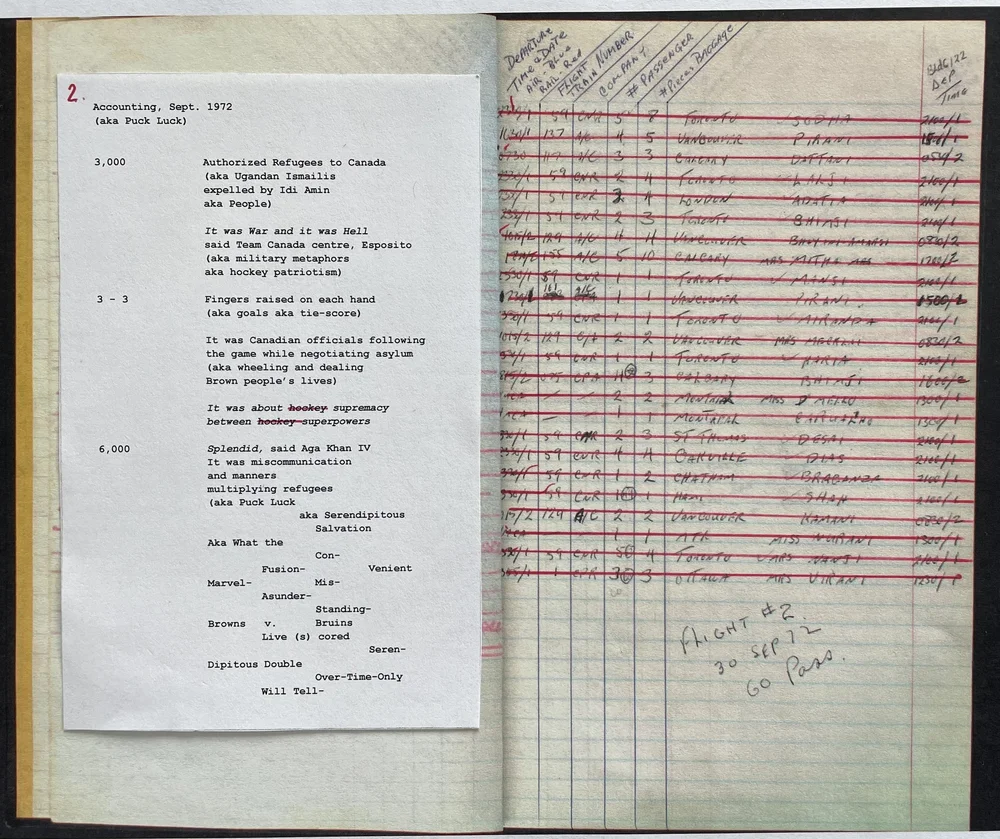 2.
Accounting, Sept. 1972
(aka Puck Luck)
3,000 Authorized Refugees to Canada
(aka Ugandan Ismailis
expelled by Idi Amin
aka People)
It was War and it was Hell
said Team Canada centre, Esposito
(aka military metaphors
aka hockey patriotism)
3 - 3 Fingers raised on each hand
(aka goals aka tie-score)
It was Canadian officials following
the game while negotiating asylum
(aka wheeling and dealing
Brown people's lives)
It was about hockey supremacy
between hockey superpowers
6,000 Splendid, said Aga Khan IV
It was miscommunication
and manners
multiplying refugees
(aka Puck Luck
aka Serendipitous
Salvation
Aka What the
Con-
Fusion- Venient
Marvel- Mis-
Asunder-
Standing-
Browns v. Bruins
Live (s) cored
Seren-
Dipitous Double
Over-Time-Only
Will Tell-
DEPARTURE
TIME & DATE
AIR - Blue
RAIL - Red
FLIGHT
TRAIN NUMBER
COMPANY
# PASSENGER
# Pieces BAGGAGE
Bldg 122
DEP
TIME
59 CNR 5 8 TORONTO SODHA 2100/1
137 A/C 4 5 VANCOUVER PIRANI
A/C 3 3 CALGARY DATTANI 0530/2
59 CNR 2 4 TORONTO LALJI 2100/1
CNR 4 LONDON ADATIA 2100/1
CNR 2 3 TORONTO BHIMJI 2100/1
129 A/C 4 4 VANCOUVER 0830/2
A/C 5 10 CALGARY MRS MITHA
59 CNR 1 1 TORONTO MANJI 2100/1
1 1 VANCOUVER PIRANI 1500/1
59 CNR 1 1 TORONTO MIRANDA 2100/1
129 2 2 VANCOUVER MRS 0830/2
59 CNR 1 1 TORONTO 2100/1
CPA 4 3 CALGARY BHIMJI
2 2 MONTREAL MRS D'MELLO 1300/1
1 1 MONTREAL 1300/1
59 CNR 2 3 ST THOMAS DESAI 2100/1
59 CNR 4 4 OAKVILLE DIAS 2100/1
59 CNR 1 2 CHATHAM BRAGANZA 2100/1
59 CNR 1 HAM SHAH 2100/1
129 A/C 2 2 VANCOUVER KAMANI 0830/2
1 1 MISS NURANI 1300/1
59 CNR 5 4 TORONTO MRS NANJI 2100/1
CPR 3 3 OTTAWA MRS VIRANI 1230/1
FLIGHT #2
30 SEP 72
60 Pass.